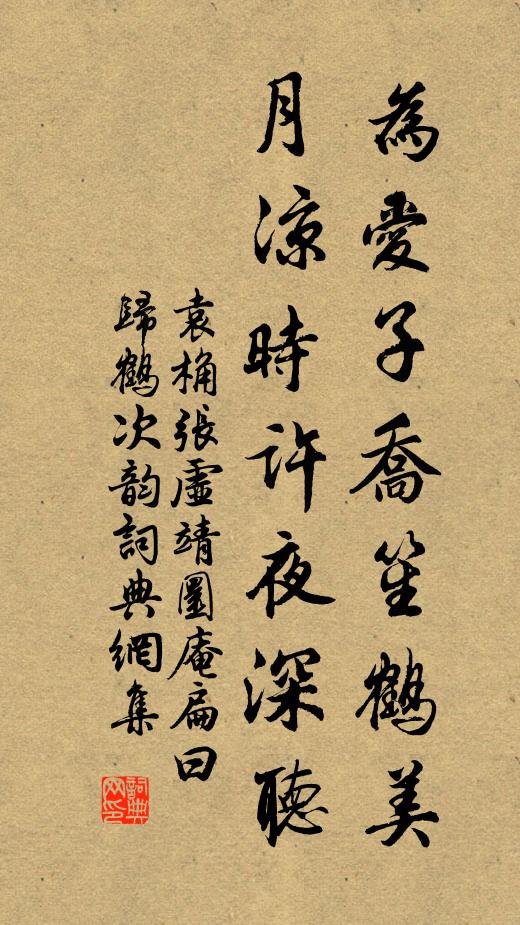 為愛子喬笙鶴美
月凉時許夜深聽
袁桷張虛靖圜庵扁曰
歸鶴次韵詞典網集
詞典網印